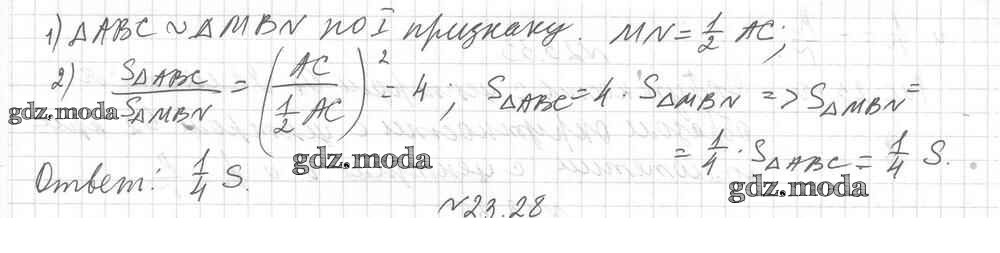 1) ΔABC ~ ΔMBN по I признаку. MN = 1/2 AC;
2) SΔABC / SΔMBN = (AC / 1/2 AC)² = 4 ; SΔABC = 4 · SΔMBN => SΔMBN =
= 1/4 · SΔABC = 1/4 S.
gdz.moda
gdz.moda
gdz.moda
Ответ: 1/4 S.
№23.28